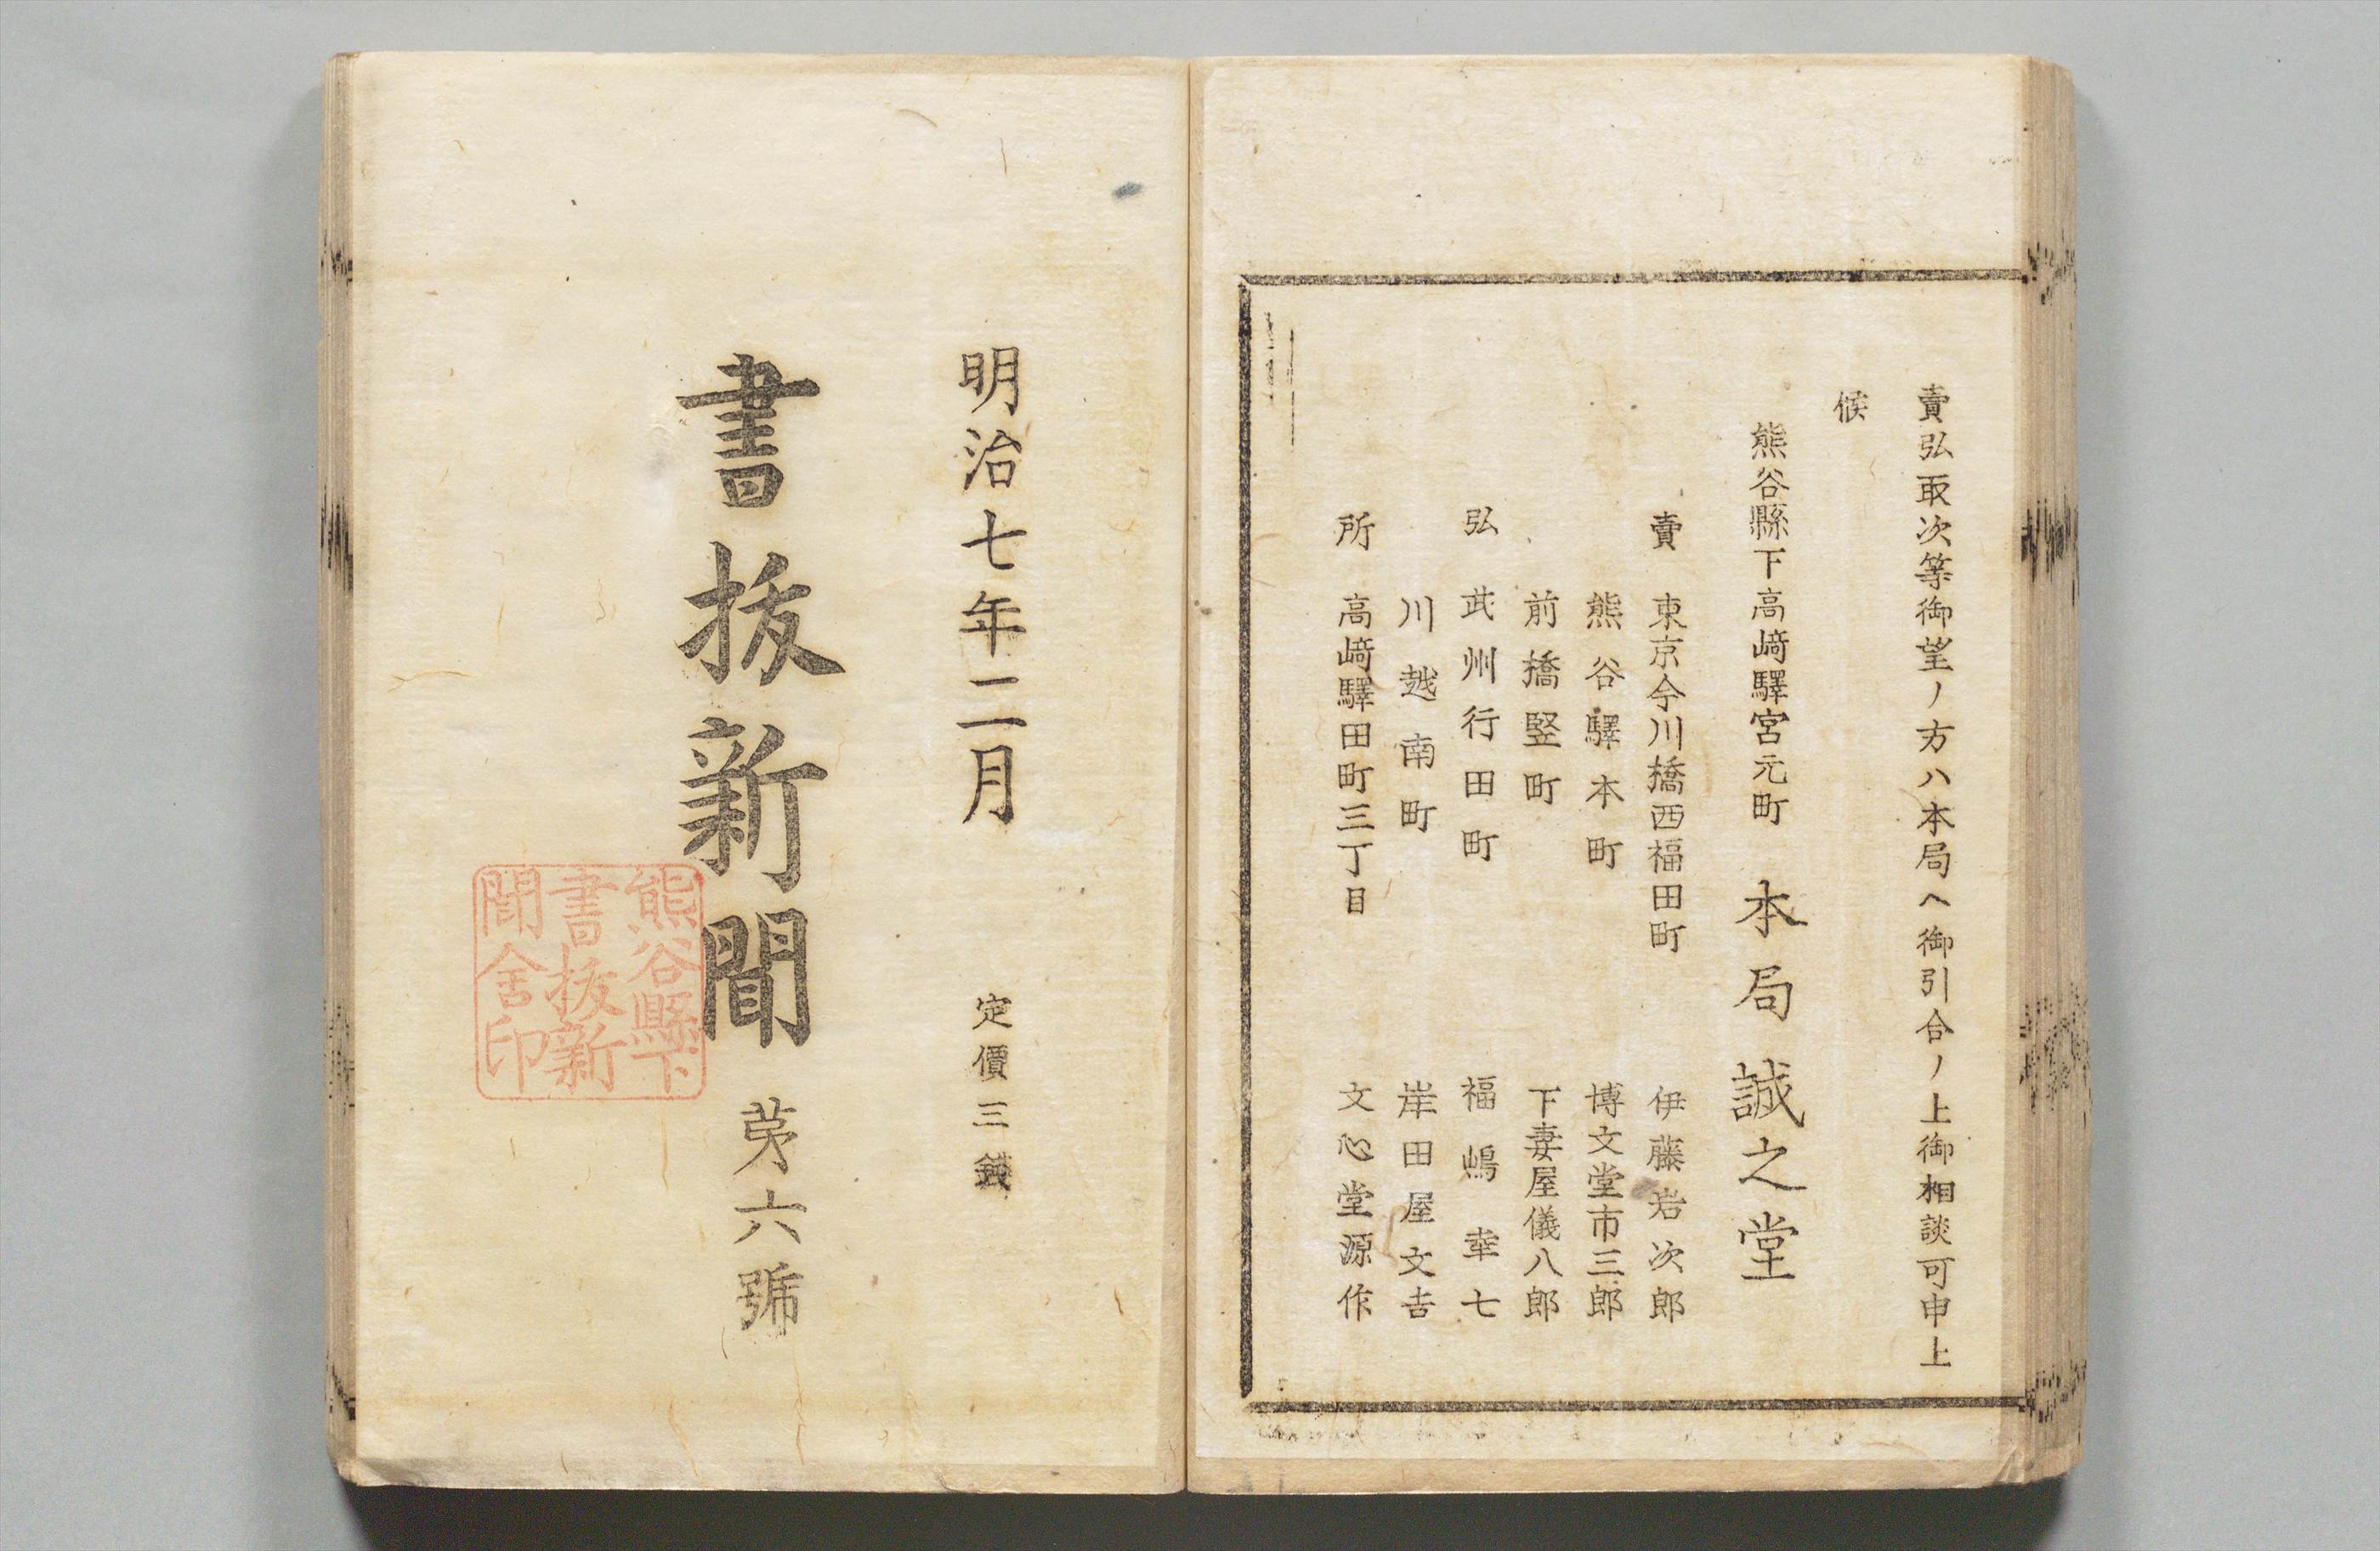 賣弘取次等御望ノ方ハ本局ヘ御引合ノ上御相談可申上
候
熊谷縣下高﨑驛宮元町 本局 誠之堂
賣 東京今川橋西福田町 伊藤岩次郎
熊谷驛本町 博文堂市三郎
前橋竪町 下妻屋儀八郎
弘 武州行田町 福嶋幸七
川越南町 岸田屋文吉
所 高﨑驛田町三丁目 文心堂源作
明治七年二月 定價三錢
書抜新聞 苐六號
熊谷縣下
書抜新
聞舍印